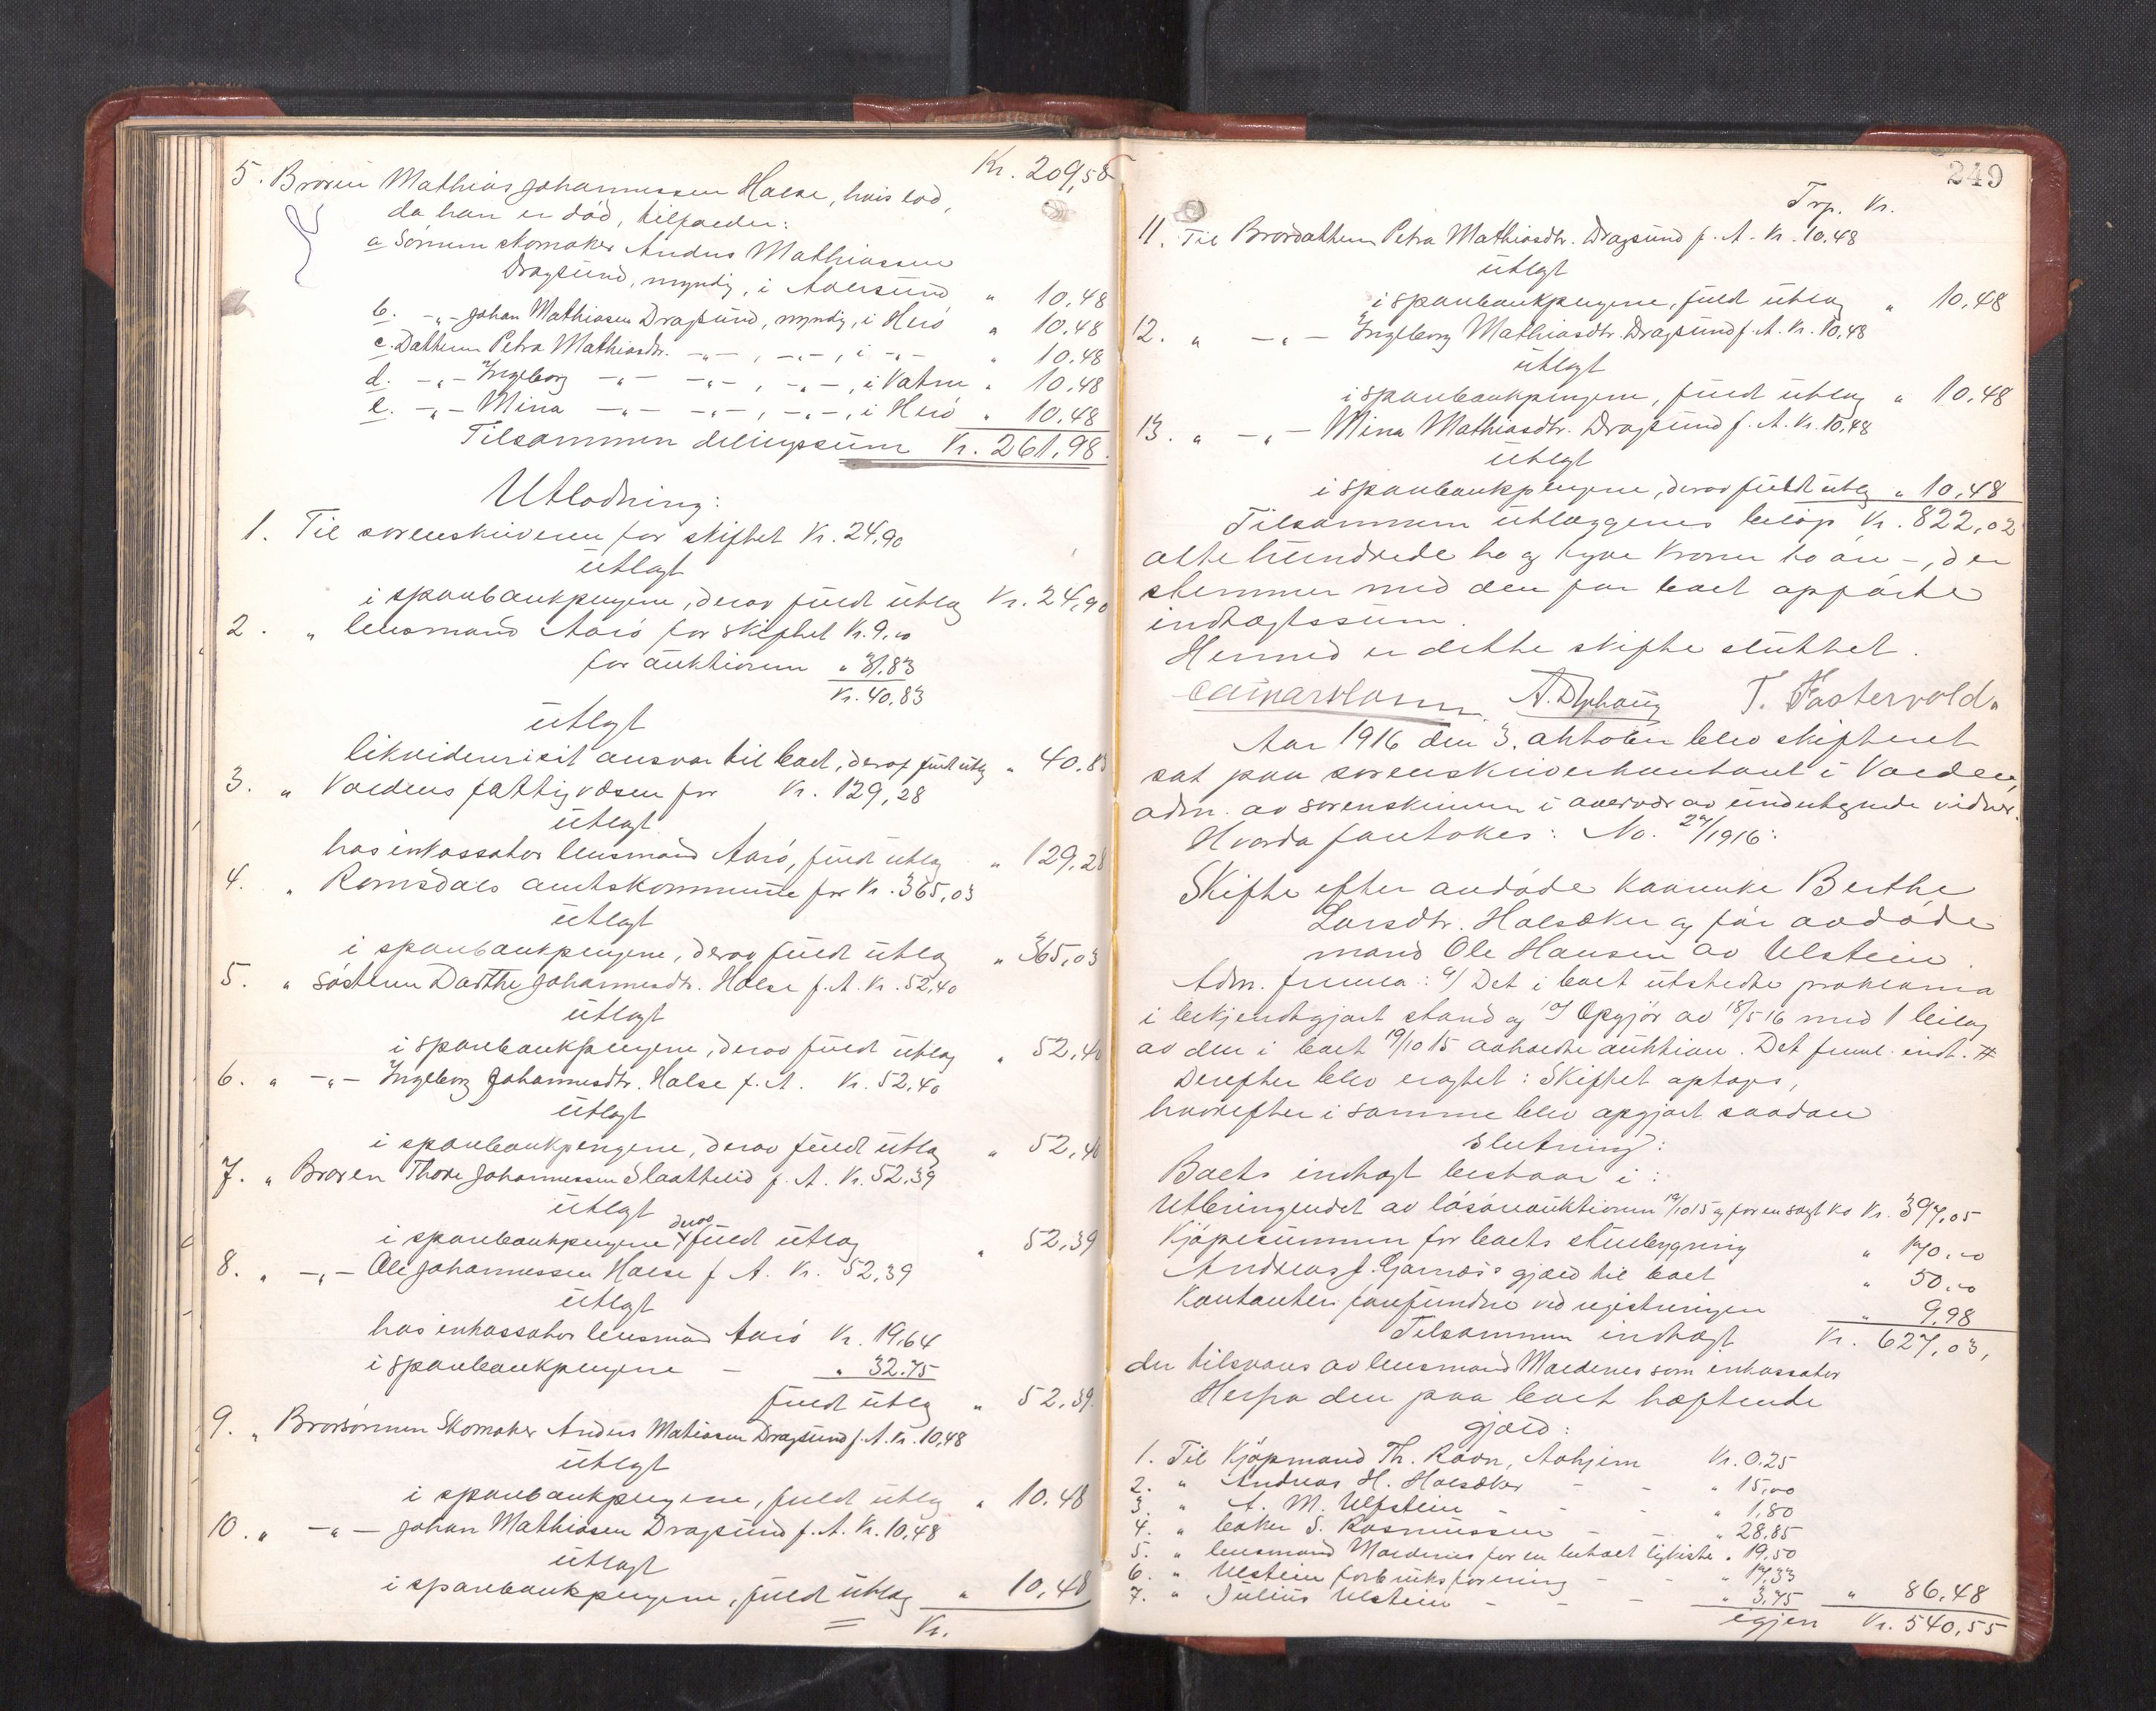 Kr. 209,58
5. Broren Mathias Johannessen Halse, hvis lod,
da han er död, tilfalder:
a Sönnen skomaker Anders Mathiassen
Dragsund, myndig, i Aalesund " 10,48
b. -"- Johan Mathiasen Dragsund, myndig, i Herö " 10,48
c. Datteren Petra Mathiasdtr. -"-, -"-, i -"- " 10,48
d. -"- Ingeborg -"- -"-, -"-, i Vatne " 10,48
e. -"- Mina -"- -"-, -"-, i Herö " 10,48
Tilsammen delingssum Kr. 261,98.
Utlodning:
1. Til sorenskriveren for skiftet Kr. 24,90
utlagt
i sparebankpengene, derav fuldt utlæg Kr. 24,90
2. " lensmand Aarö for skiftet Kr. 9,00
for auktionen " 31.83
Kr. 40,83
utlagt
likvidenviset ansvar til boet, derav fuldt utlæg " 40.83
3. " Voldens fattigvæsen for Kr. 129,28
utlagt
hos inkassator lensmand Aarö, fuldt utlæg " 129,28
4. " Romsdals amtskommune for Kr. 365,03
utlagt
i sparebankpengene, derav fuldt utlæg " 365,03
5. " Söstren Dorthe Johannesdtr. Halse f. A. Kr. 52,40
utlagt
i sparebankpengene, derav fuldt utlæg " 52,40
6. " -"- Ingeborg Johannesdtr. Halse f. A. Kr. 52,40
utlagt
i sparebankpengene, derav fuldt utlæg " 52,40
7. " Broren Thore Johannessen Slaattelid f. A. Kr. 52,39
utlagt
i sparebankpengene derav fuldt utlæg " 52,39
8. " -"- Ole Johannessen Halse f A. Kr. 52,39
utlagt
hos inkassator lensmand Aarö Kr. 19,64
i sparebankpengene - " 32.75
fuldt utlæg " 52,39.
9. " Brorsönnen Skomaker Anders Matiasen Dragsund f. A. Kr. 10,48
utlagt
i sparebankpengene, fuldt utlæg " 10.48
10. " -"- Johan Mathiasen Dragsund f. A. Kr. 10,48
utlagt
i sparebankpengene, fuldt utlæg " 10,48
Kr.
249
Trp. Kr.
11. Til Brordatteren Petra Mathiasdtr. Dragsund f. A. Kr. 10.48
utlagt
i sparebankpengene, fuldt utlæg " 10,48
12. " -"- Ingeborg Mathiasdtr. Dragsund f. A. Kr. 10,48
utlagt
i sparebankpengene, fuldt utlæg " 10,48
13. " -"- Mina Mathiasdtr. Dragsund f. A. Kr. 10,48
utlagt
i sparebankpengene, derav fuldt utlæg " 10,48
Tilsammen utlæggenes belöp Kr. 822,02
otte hundrede to og tyve kroner to öre -, der
stemmer med den for boet opförte
indtægtssum.
Hermed er dette skifte sluttet.
T. Fastervold.
Aar 1916 den 3. oktober blev skifteret
sat paa sorenskriverkontoret i Volden,
adm. av sorenskriveren i overvær av undertegnede vidner.
Hvorda foretokes: No. 27/1916:
Skifte efter avdöde kaarenke Berthe
Larsdtr. Halsöker og för avdöde
mand Ole Hansen av Ulstein.
Adm. fremla: a/ Det i boet utstedte proklama
i bekjendtgjort stand og b/ Opgjör av 18/5 16 med 1 bilag
av den i boet 19/10 15 avholdte auktion. Det freml. indt. #
Derefter blev eragtet: Skiftet optages,
hvorefter i samme blev opgjort saadan
slutning:
Boets indtægt bestaar i:
Utbringendet av lösöreauktionen 19/10 15 og for en solgt ko Kr. 397,05
Kjöpesummen for boets stuebygning " 170,00
Andreas J. Garnæs's gjæld til boet " 50,00
Kontanter forefundne ved registreringen " 9,98
Tilsammen indtægt Kr. 627,03,
der tilsvares av lensmand Moldenes som inkassator
Herfra den paa boet hæftende
gjæld:
1. Til Kjöpmand Th. Ravn, Aahjem Kr. 0.25
2. " Andreas H. Halsöker - - " 15,00
3. " A. M. Ulfstein - - " 1,80
4. " baker S. Rasmussen - - " 28,85
5. " lensmand Moldenes for en betalt ligkiste " 19,50
6. " Ulstein forbruksforening - - " 17,33
7. " Julius Ulstein - - - " 3,75 " 86,48
igjen Kr. 540,55